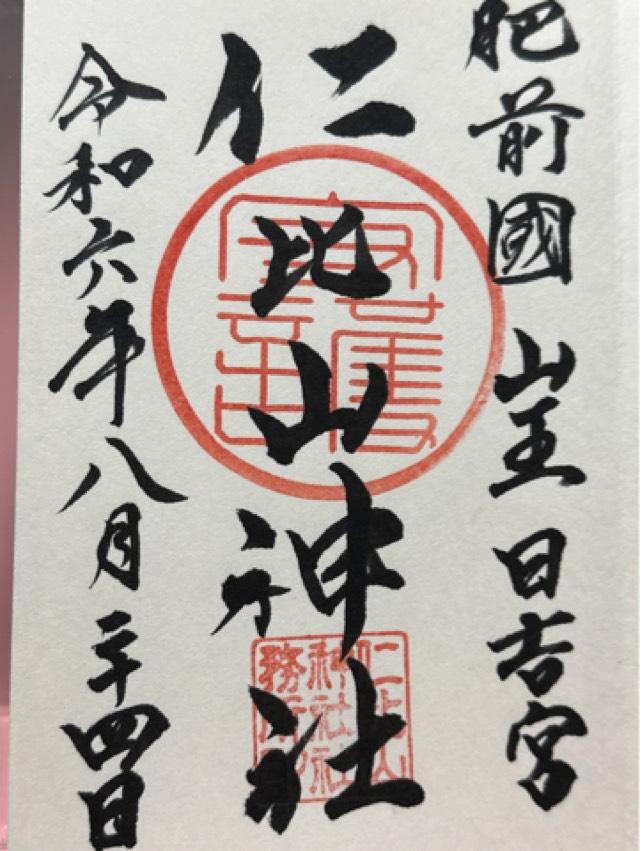 肥前國 山王 日吉宮
仁比山神社
仁比山
神社社
務所印
令和六年八月二十四日